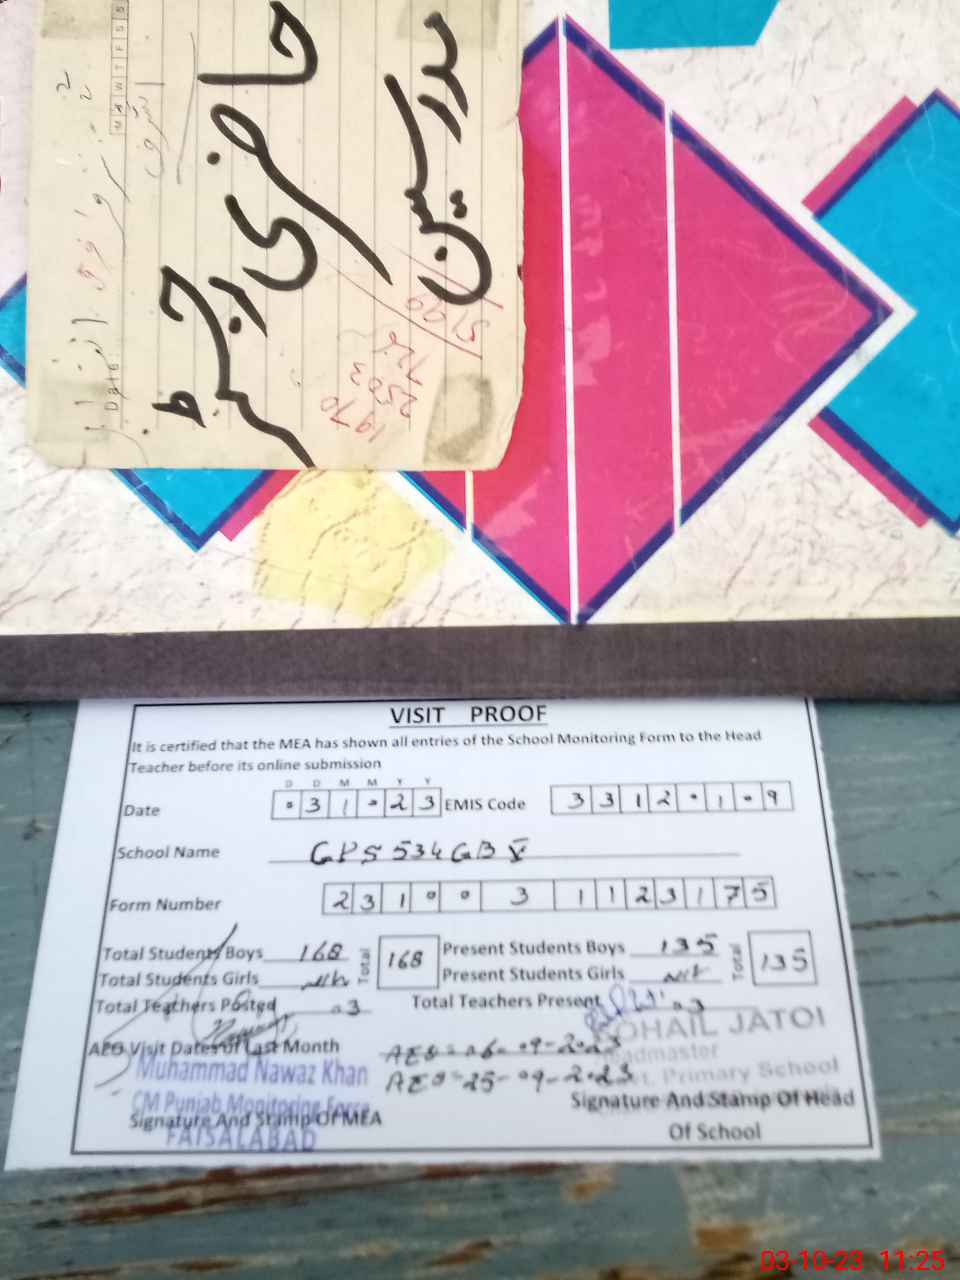 حاضری رجسٹر
مدرسین
M T W T F S S
Date:
5199
72
2503
1970
VISIT PROOF
It is certified that the MEA has shown all entries of the School Monitoring Form to the Head
Teacher before its online submission
D D M M Y Y
Date 031023 EMIS Code 33120109
School Name GPS 534 GB
Form Number 23100311123175
Total Students Boys 168 Total 168 Present Students Boys 135 Total 135
Total Students Girls Nil Present Students Girls Nil
Total Teachers Posted 03 Total Teachers Present 03
AEO Visit Dates of Last Month AEO = 06-09-2023
AEO = 25-09-2023
Muhammad Nawaz Khan
CM Punjab Monitoring Force
FAISALABAD
Signature And Stamp Of MEA
SOHAIL JATOI
Headmaster
Govt. Primary School
Signature And Stamp Of Head
Of School
03-10-23 11:25